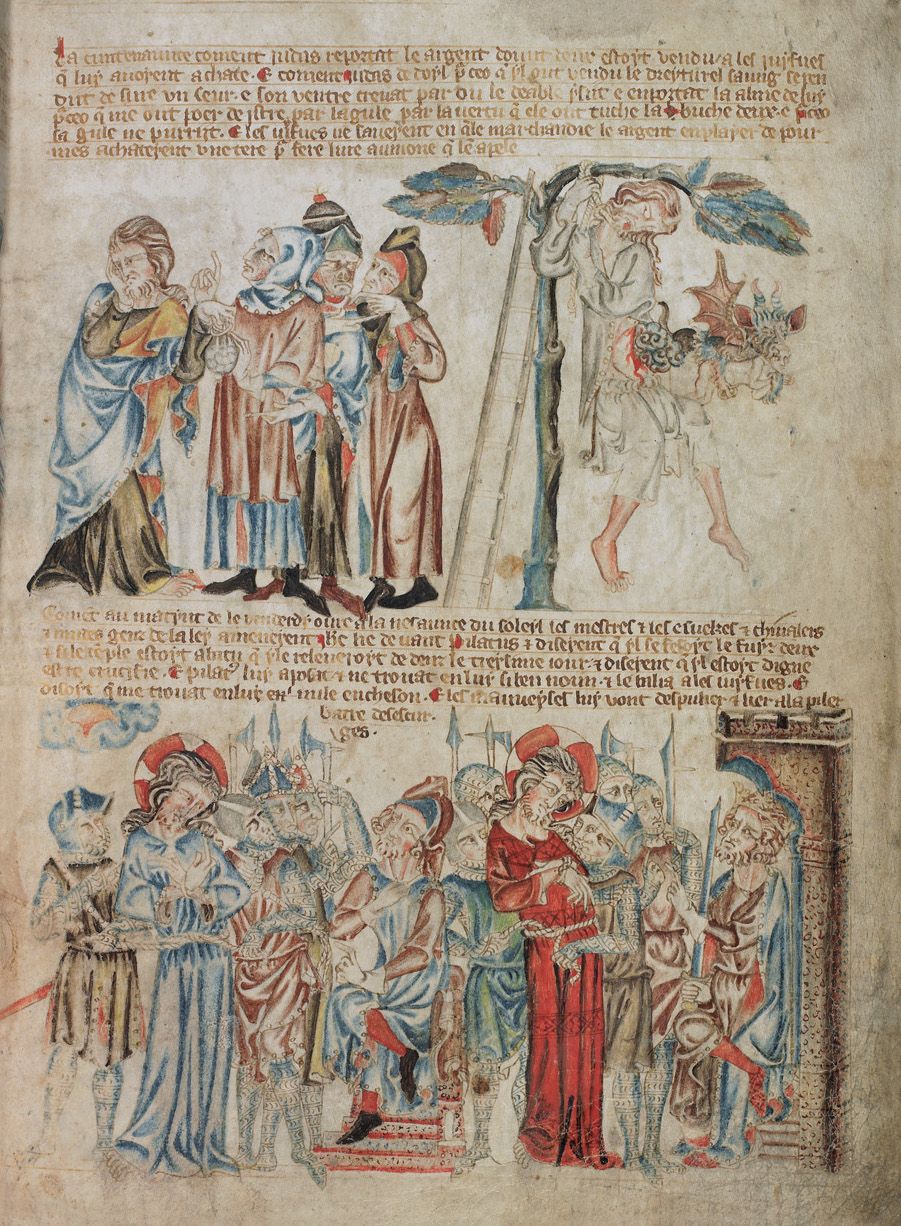 La cuntenaunce coment iudas reportat le argent dount deu estoyt vendu a les iuyfues
q luy auoyent achate. E coment iudas de doyl p ceo q yl out vendu le dreyturel saung se pen
dut de sure vn seur. e son ventre creuat par ou le deable ysit e enportat la alme de luy
p ceo q ne out poer de istre par la gule par la vertu q ele out tuche la buche deu. e p ceo
sa gule ne purrit. E les iufues ne sauerent en qle marchandie le argent enplayer de pour
mes achaterent vne tere p fere sure aumone q le apele
Coment au matynt de le venderdy oue a la nesaunce du soleyl les mestres & &
de la ley amenerent de uant Pilatus & diserent q si le feseyt le fuyz deu
& si le temple estoyt abatu q yl le releueroyt de denz le tiersime iour & diserent q yl estoyt digne
estre crucifie. E pilat luy aposat & ne trouat en luy si ben noun. & le bailia a les iuyfues. E
disoyt q ne trouat en luy nule encheson. E les maueyses luy vont despuiler & lier a la piler
batre de scour
ges.